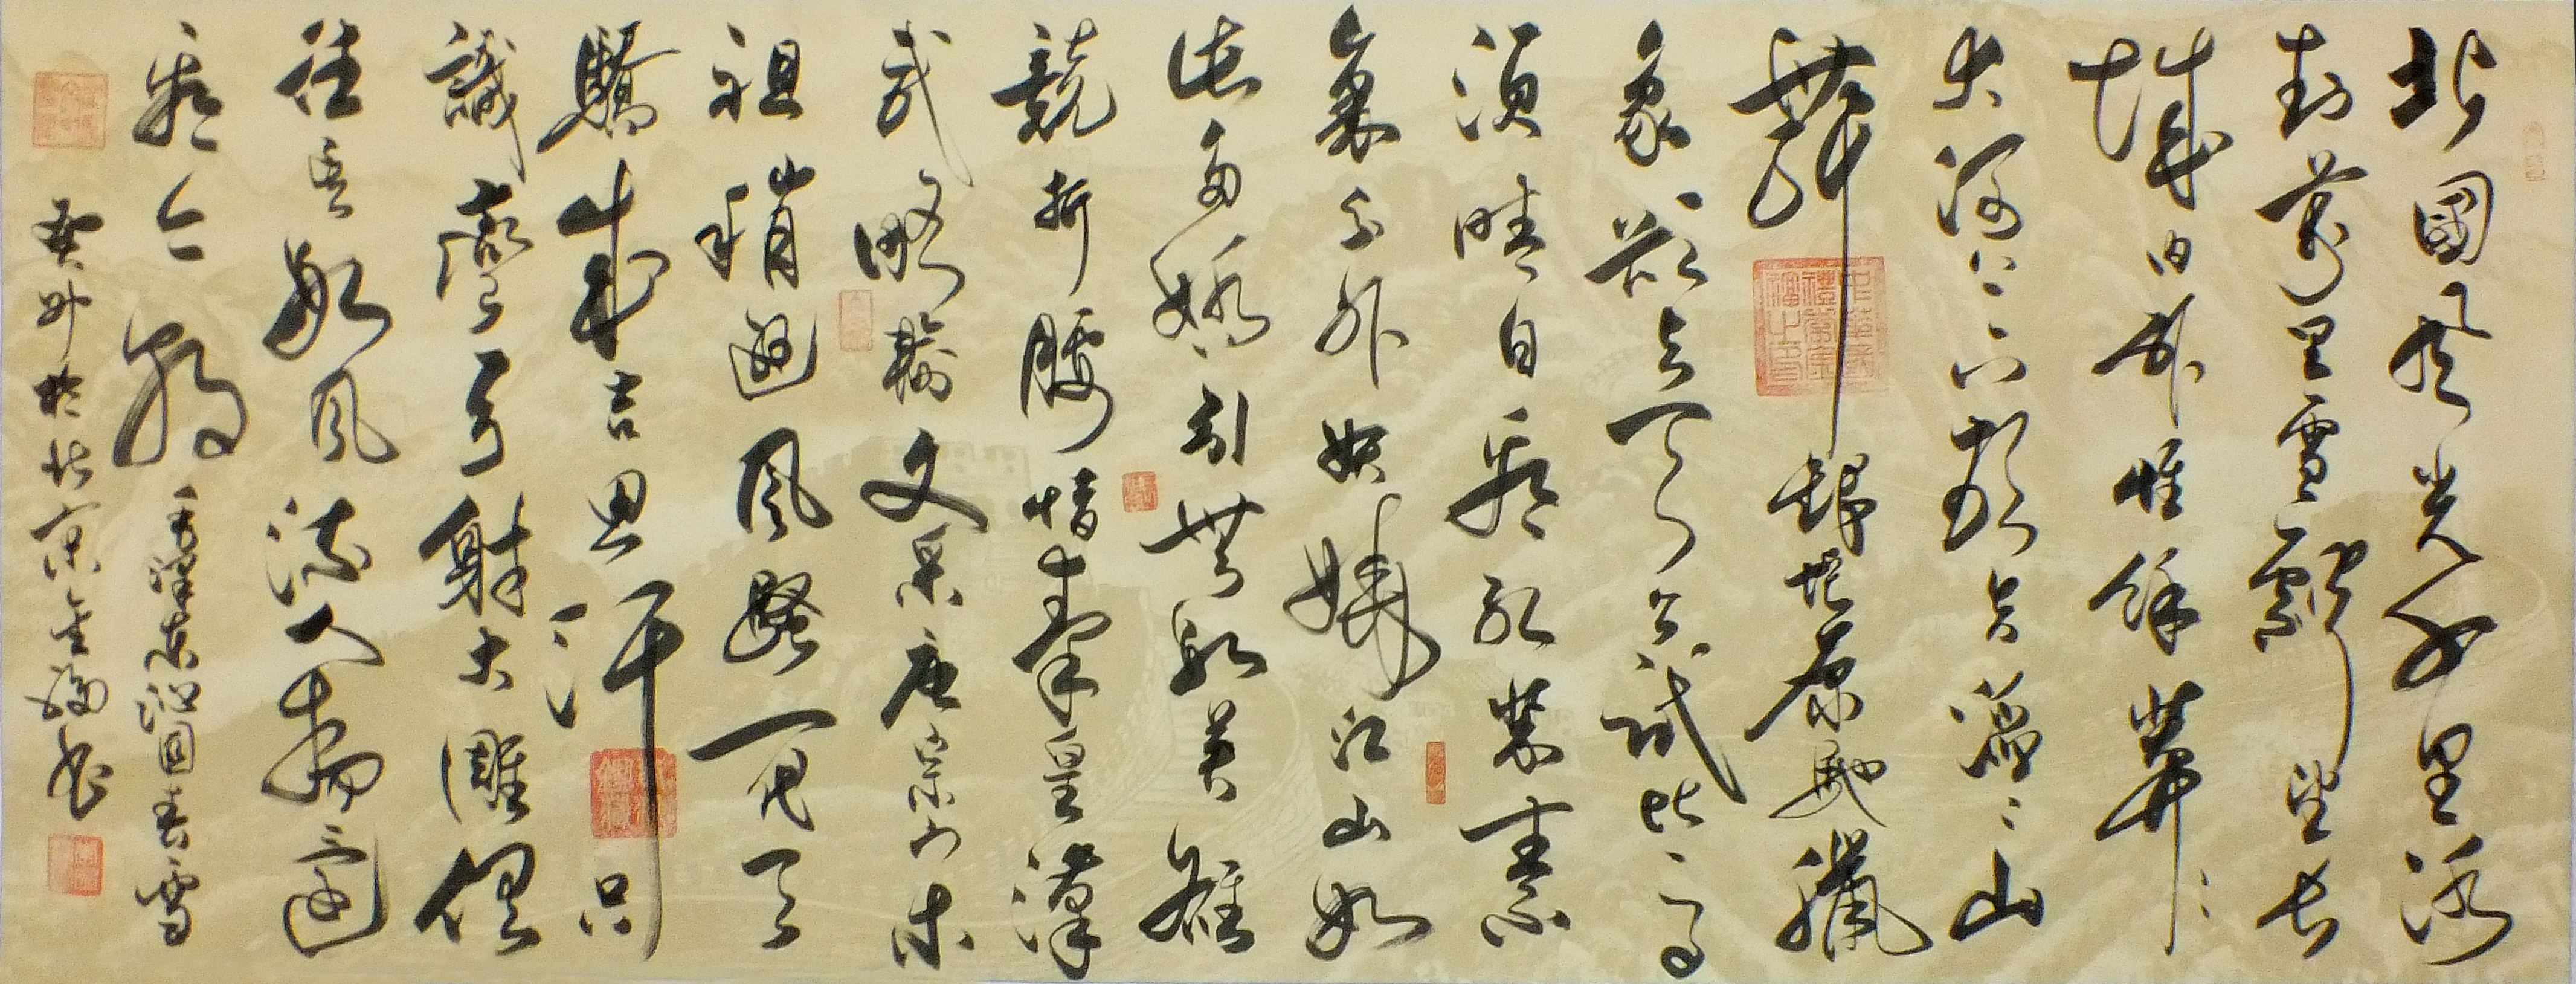 北國風光千里冰
封萬里雪飄望長
城内外惟餘莽々
大河上下頓失滔々山
舞銀蛇原馳臘
象欲与天公試比高
須晴日看紅裝素
裹分外妖嬈江山如
此多嬌引無數英雄
競折腰惜秦皇漢
武略輸文采唐宗宋
祖稍遜風騷一代天
驕成吉思汗只
識彎弓射大雕俱
往矣數風流人物還
看今朝 毛澤東沁園春雪
癸卯於北京